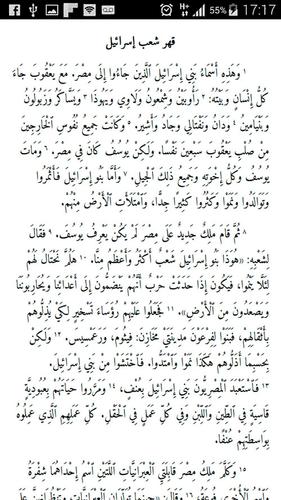 55% 17:17
قهر شعب إسرائيل
١ وَهَذِهِ أَسْمَاءُ بَنِي إِسْرَائِيلَ ٱلَّذِينَ جَاءُوا إِلَى مِصْرَ. مَعَ يَعْقُوبَ جَاءَ
كُلُّ إِنْسَانٍ وَبَيْتُهُ: ٢ رَأُوبَيْنُ وَشِمْعُونُ وَلَاوِي وَيَهُوذَا ٣ وَيَسَّاكَرُ وَزَبُولُونُ
وَبَنْيَامِينُ ٤ وَدَانُ وَنَفْتَالِي وَجَادُ وَأَشِيرُ. ٥ وَكَانَتْ جَمِيعُ نُفُوسِ ٱلْخَارِجِينَ
مِنْ صُلْبِ يَعْقُوبَ سَبْعِينَ نَفْسًا. وَلَكِنْ يُوسُفُ كَانَ فِي مِصْرَ. ٦ وَمَاتَ
يُوسُفُ وَكُلُّ إِخْوَتِهِ وَجَمِيعُ ذَلِكَ ٱلْجِيلِ. ٧ وَأَمَّا بَنُو إِسْرَائِيلَ فَأَثْمَرُوا
وَتَوَالَدُوا وَنَمَوْا وَكَثُرُوا كَثِيرًا جِدًّا، وَٱمْتَلَأَتِ ٱلْأَرْضُ مِنْهُمْ.
٨ ثُمَّ قَامَ مَلِكٌ جَدِيدٌ عَلَى مِصْرَ لَمْ يَكُنْ يَعْرِفُ يُوسُفَ. ٩ فَقَالَ
لِشَعْبِهِ: «هُوَذَا بَنُو إِسْرَائِيلَ شَعْبٌ أَكْثَرُ وَأَعْظَمُ مِنَّا. ١٠ هَلُمَّ نَحْتَالُ لَهُمْ
لِئَلَّا يَنْمُوا، فَيَكُونَ إِذَا حَدَثَتْ حَرْبٌ أَنَّهُمْ يَنْضَمُّونَ إِلَى أَعْدَائِنَا وَيُحَارِبُونَنَا
وَيَصْعَدُونَ مِنَ ٱلْأَرْضِ». ١١ فَجَعَلُوا عَلَيْهِمْ رُؤَسَاءَ تَسْخِيرٍ لِكَيْ يُذِلُّوهُمْ
بِأَثْقَالِهِمْ، فَبَنَوْا لِفِرْعَوْنَ مَدِينَتَيْ مَخَازِنَ: فِيثُومَ، وَرَعَمْسِيسَ. ١٢ وَلَكِنْ
بِحَسْبِمَا أَذَلُّوهُمْ هَكَذَا نَمَوْا وَٱمْتَدُّوا. فَٱخْتَشَوْا مِنْ بَنِي إِسْرَائِيلَ.
١٣ فَٱسْتَعْبَدَ ٱلْمِصْرِيُّونَ بَنِي إِسْرَائِيلَ بِعُنْفٍ، ١٤ وَمَرَّرُوا حَيَاتَهُمْ بِعُبُودِيَّةٍ
قَاسِيَةٍ فِي ٱلطِّينِ وَٱللِّبْنِ وَفِي كُلِّ عَمَلٍ فِي ٱلْحَقْلِ. كُلِّ عَمَلِهِمِ ٱلَّذِي عَمِلُوهُ
بِوَاسِطَتِهِمْ عُنْفًا.
١٥ وَكَلَّمَ مَلِكُ مِصْرَ قَابِلَتَيِ ٱلْعِبْرَانِيَّاتِ ٱللَّتَيْنِ ٱسْمُ إِحْدَاهُمَا شِفْرَةُ